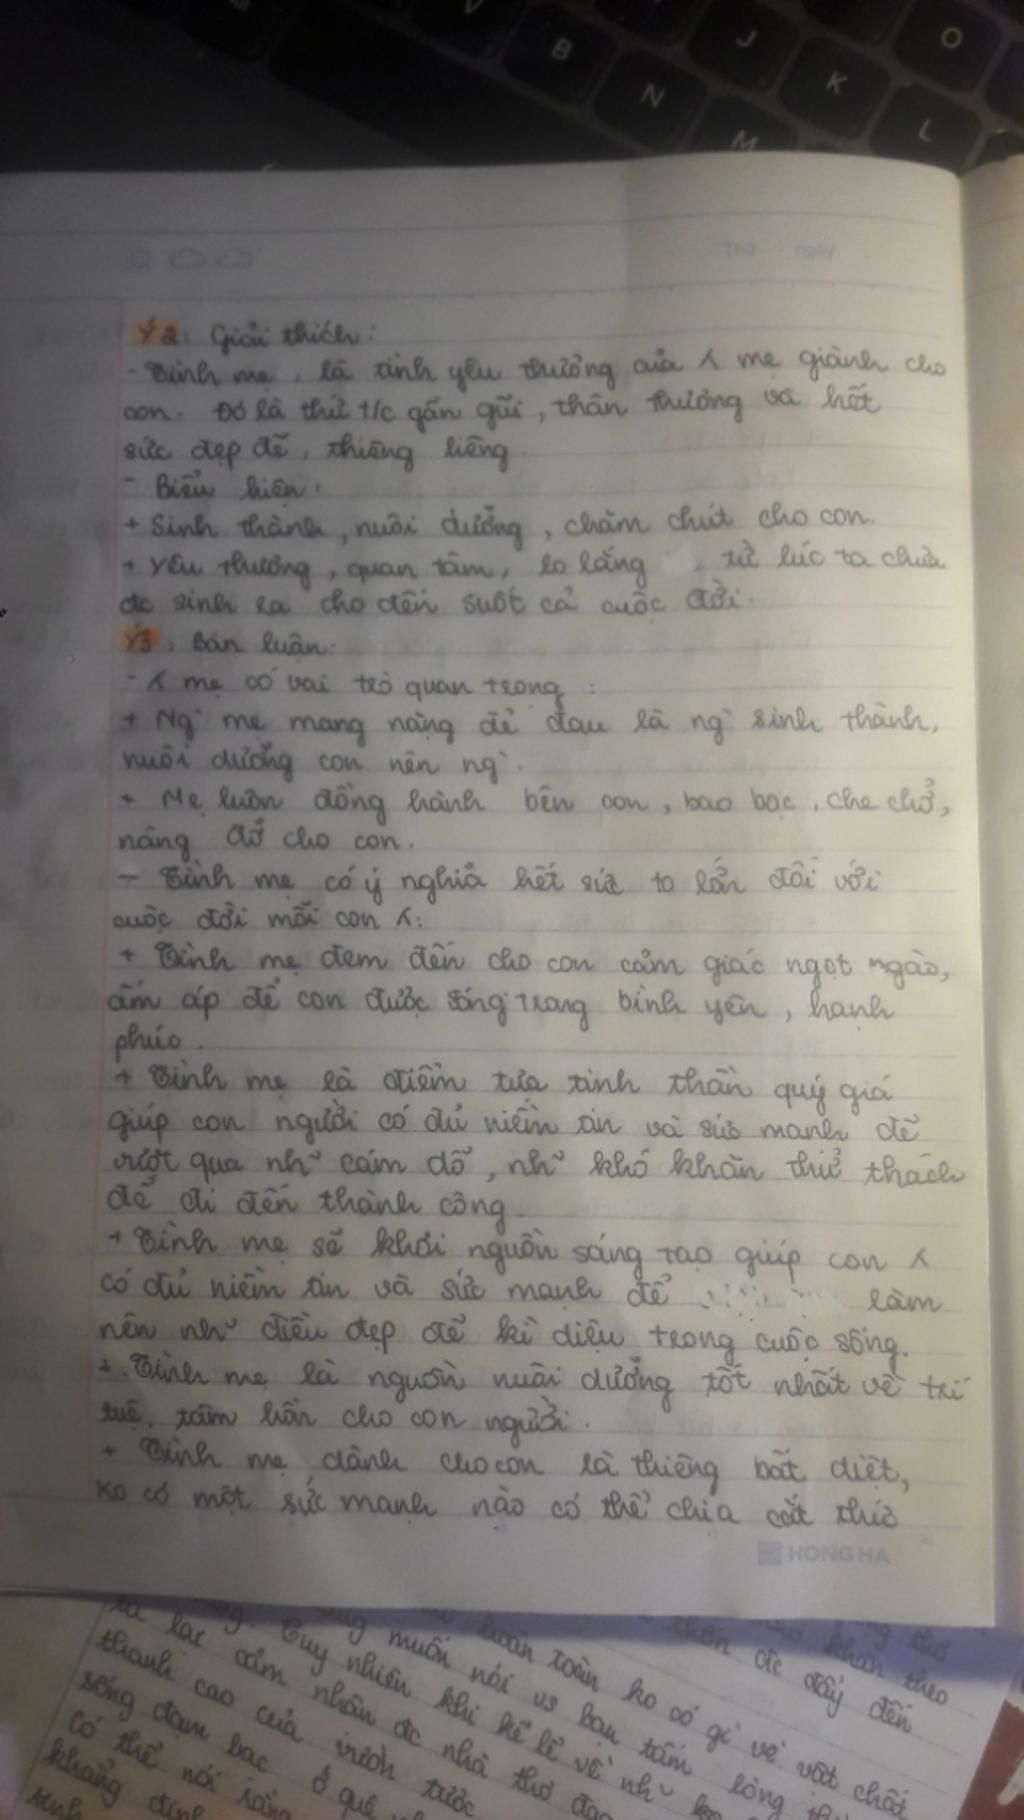 B
N
M
J
K
L
O
Thứ ngày
Ý2: Giải thích:
- Tình mẹ, là tình yêu thương của λ mẹ giành cho
con. Đó là thứ t/c gần gũi, thân thương và hết
sức đẹp đẽ, thiêng liêng.
- Biểu hiện:
+ Sinh thành, nuôi dưỡng, chăm chút cho con.
+ Yêu thương, quan tâm, lo lắng , từ lúc ta chưa
đc sinh ra cho đến suốt cả cuộc đời.
Ý3: Bàn luận:
- λ mẹ có vai trò quan trọng:
+ Ng` mẹ mang nặng đẻ đau là ng` sinh thành,
nuôi dưỡng con nên ng`.
+ Mẹ luôn đồng hành bên con, bao bọc, che chở,
nâng đỡ cho con.
- Tình mẹ có ý nghĩa hết sức to lớn đối với
cuộc đời mỗi con λ:
+ Tình mẹ đem đến cho con cảm giác ngọt ngào,
ấm áp để con được sống trong bình yên, hạnh
phúc.
+ Tình mẹ là điểm tựa tinh thần quý giá
giúp con người có đủ niềm tin và sức mạnh để
vượt qua nh~ cám dỗ, nh~ khó khăn thử thách
để đi đến thành công.
+ Tình mẹ sẽ khơi nguồn sáng tạo giúp con λ
có đủ niềm tin và sức mạnh để làm
nên nh~ điều đẹp đẽ kì diệu trong cuộc sống.
+ Tình mẹ là nguồn nuôi dưỡng tốt nhất về trí
tuệ, tâm hồn cho con người.
+ Tình mẹ dành cho con là thiêng bất diệt,
ko có một sức mạnh nào có thể chia cắt thứ
HONG HA
hoàn toàn ko có gì về vật chất
muốn nói vs bạn tấm lòng
Tuy nhiên khi kể lể về nh~
cảm nhận đc nhà thơ
thanh cao của vườn tược
sống đạm bạc ở quê
Có thể nói rằng
khẳng định
chốn đc đẩy đến
khăn theo